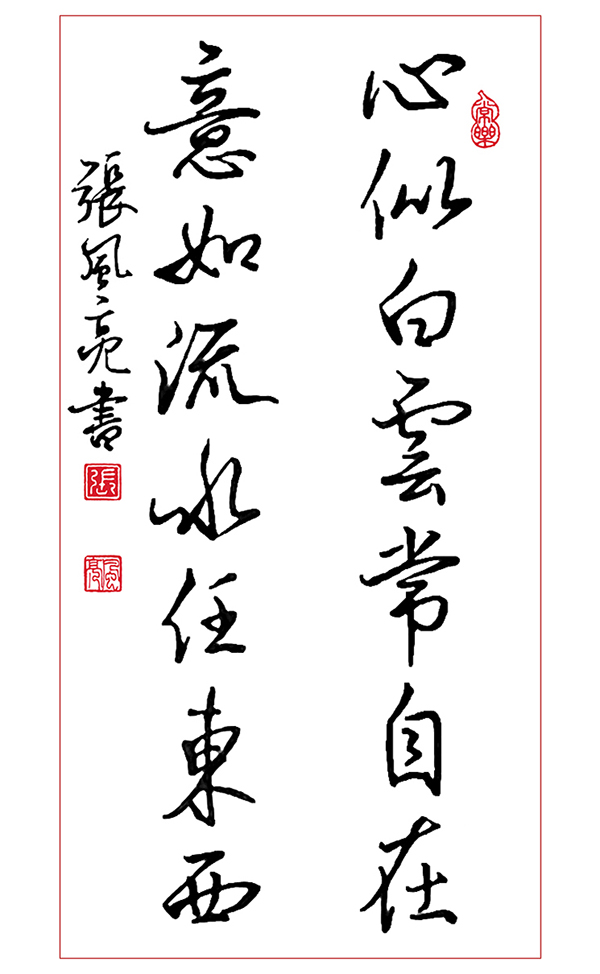 心似白雲常自在
意如流水任東西
張風亮書
常樂
張
風亮